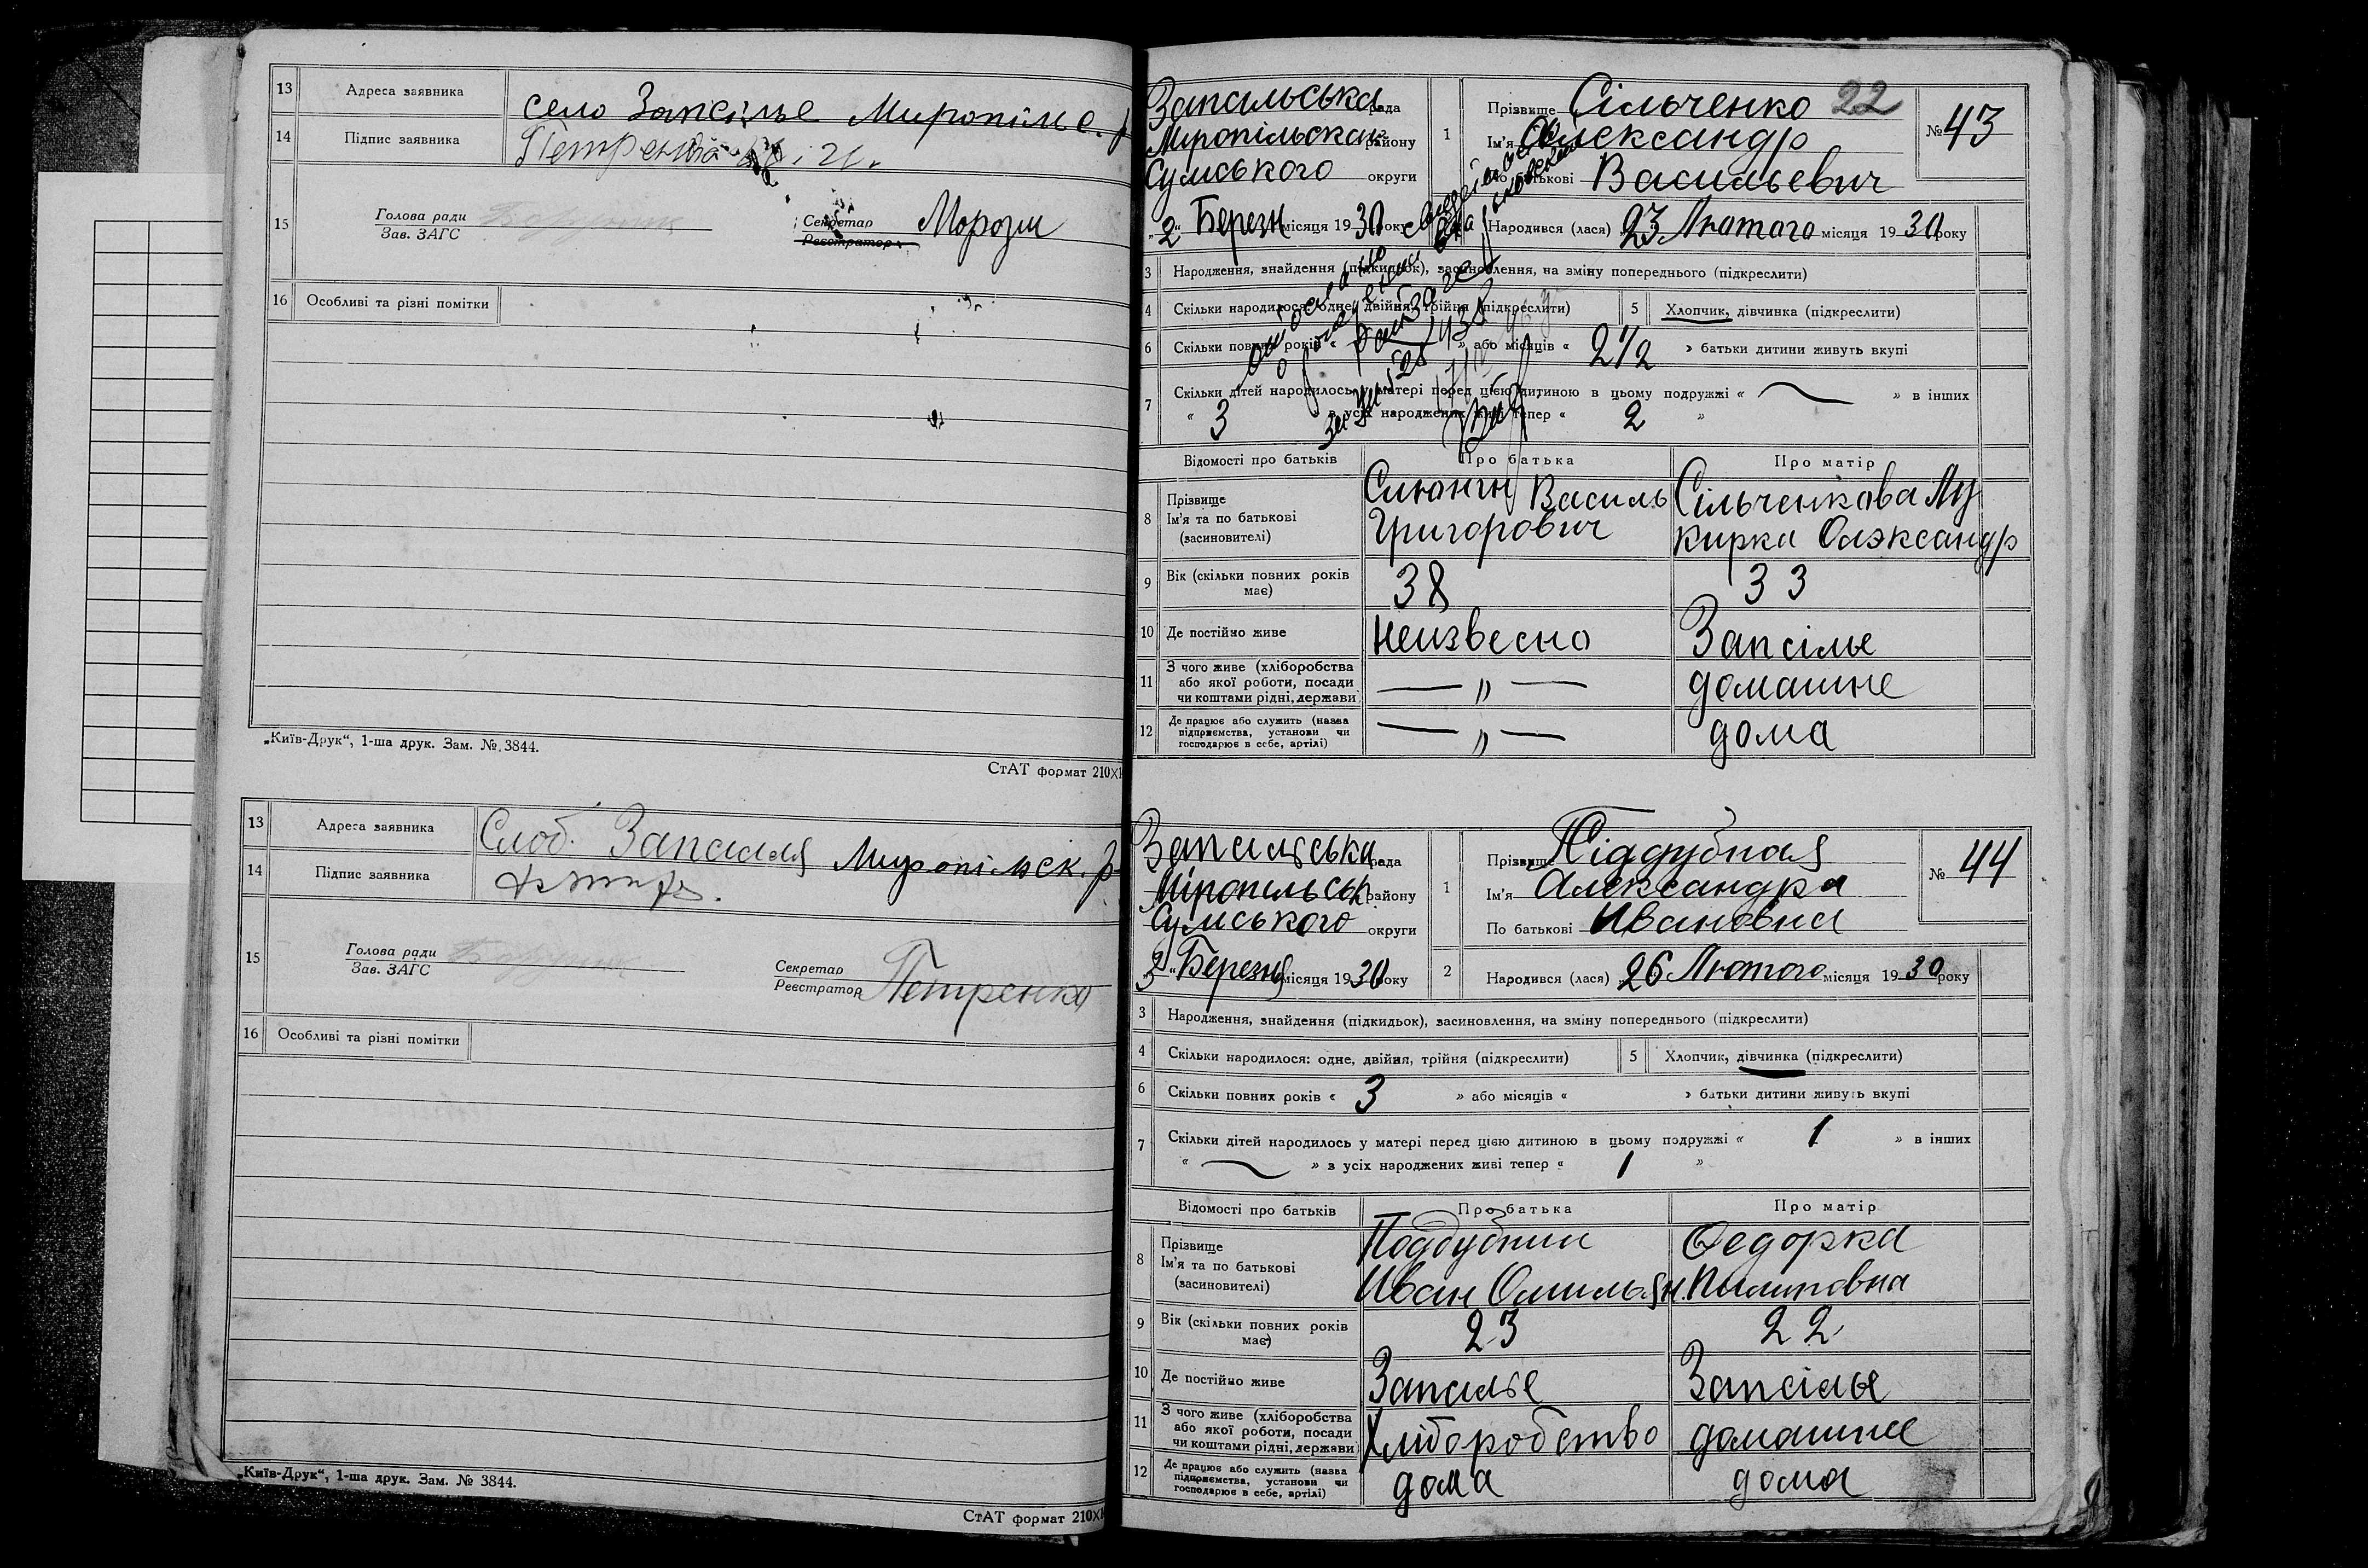 13 Адреса заявника село Запсілье Миропільс. р
14 Підпис заявника
15 Голова ради
Зав. ЗАГС
Секретар Морозы
Реєстратор
16 Особливі та різні помітки
„Київ-Друк“, 1-ша друк. Зам. № 3844.
СтАТ формат 210Х
13 Адреса заявника Слоб. Запсилля Миропільск. р
14 Підпис заявника
15 Голова ради
Зав. ЗАГС
Секретар Петренко
Реєстратор
16 Особливі та різні помітки
„Київ-Друк“, 1-ша друк. Зам. № 3844.
СтАТ формат 210Х
22
Запсильська рада
Миропільская району
Сумського округи
„2“ Березня місяця 1930 року
1 Прізвище Сільченко
Ім'я Олександр
По батькові Васильевич
№ 43
Народився (лася) 23 Лютого місяця 1930 року
3 Народження, знайдення (підкидьок), засиновлення, на зміну попереднього (підкреслити)
4 Скільки народилося: одне, двійня, трійня (підкреслити) 5 Хлопчик, дівчинка (підкреслити)
6 Скільки повних років « » або місяців « 2 1/2 » батьки дитини живуть вкупі
7 Скільки дітей народилось у матері перед цією дитиною в цьому подружжі « — » в інших
« 3 » з усіх народжених живі тепер « 2 »
Відомості про батьків Про батька Про матір
8 Прізвище
Ім'я та по батькові
(засиновителі)
Василь
Григорович
Сільченкова Лу
кирка Олэксандр
9 Вік (скільки повних років має) 38 33
10 Де постійно живе неизвесно Запсілье
11 З чого живе (хліборобства
або якої роботи, посади
чи коштами рідні, держави — „ — домашне
12 Де працює або служить (назва
підприємства, установи чи
господарює в себе, артілі) — „ — дома
Запсильська рада
Міропильськ району
Сумського округи
Березня місяця 1930 року
1 Прізвище Піддубная
Ім'я Александра
По батькові Ивановна
№ 44
2 Народився (лася) 26 Лютого місяця 1930 року
3 Народження, знайдення (підкидьок), засиновлення, на зміну попереднього (підкреслити)
4 Скільки народилося: одне, двійня, трійня (підкреслити) 5 Хлопчик, дівчинка (підкреслити)
6 Скільки повних років « 3 » або місяців « » батьки дитини живуть вкупі
7 Скільки дітей народилось у матері перед цією дитиною в цьому подружжі « 1 » в інших
« — » з усіх народжених живі тепер « 1 »
Відомості про батьків Про батька Про матір
8 Прізвище
Ім'я та по батькові
(засиновителі)
Поддубний
Иван Омильян.
Федорка
Пилиповна
9 Вік (скільки повних років має) 23 22
10 Де постійно живе Запсилье Запсілье
11 З чого живе (хліборобства
або якої роботи, посади
чи коштами рідні, держави Хліборобство домашне
12 Де працює або служить (назва
підприємства, установи чи
господарює в себе, артілі) дома дома